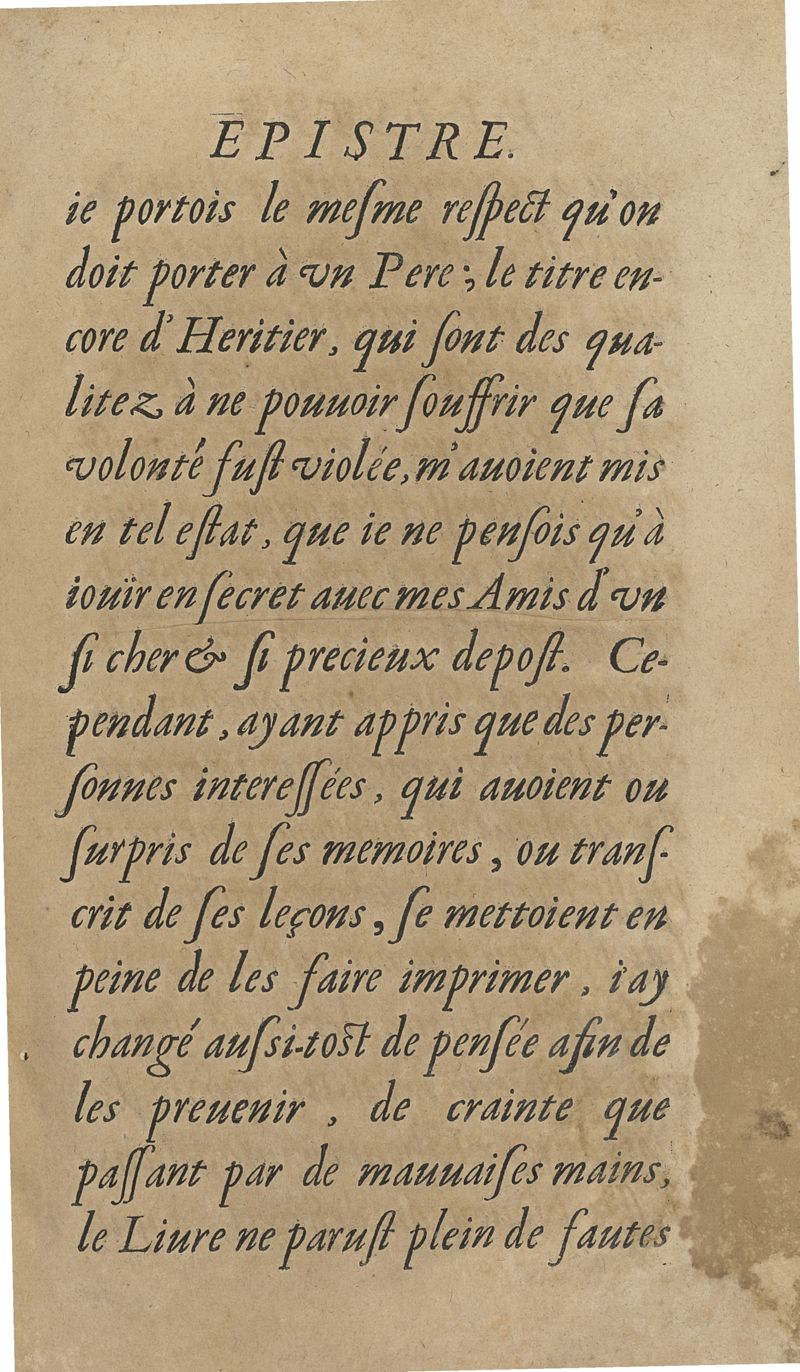 EPISTRE.
ie portois le meſme reſpect qu'on
doit porter à vn Pere ; le titre en-
core d'Heritier, qui ſont des qua-
litez à ne pouuoir ſouffrir que ſa
volonté fuſt violée, m'auoient mis
en tel eſtat, que ie ne penſois qu'à
iouïr en ſecret auec mes Amis d'vn
ſi cher & ſi precieux depoſt. Ce-
pendant, ayant appris que des per-
ſonnes intereſſées, qui auoient ou
ſurpris de ſes memoires, ou tranſ-
crit de ſes leçons, ſe mettoient en
peine de les faire imprimer, i'ay
changé auſsi-toſt de penſée afin de
les preuenir, de crainte que
paſſant par de mauuaiſes mains,
le Liure ne paruſt plein de fautes